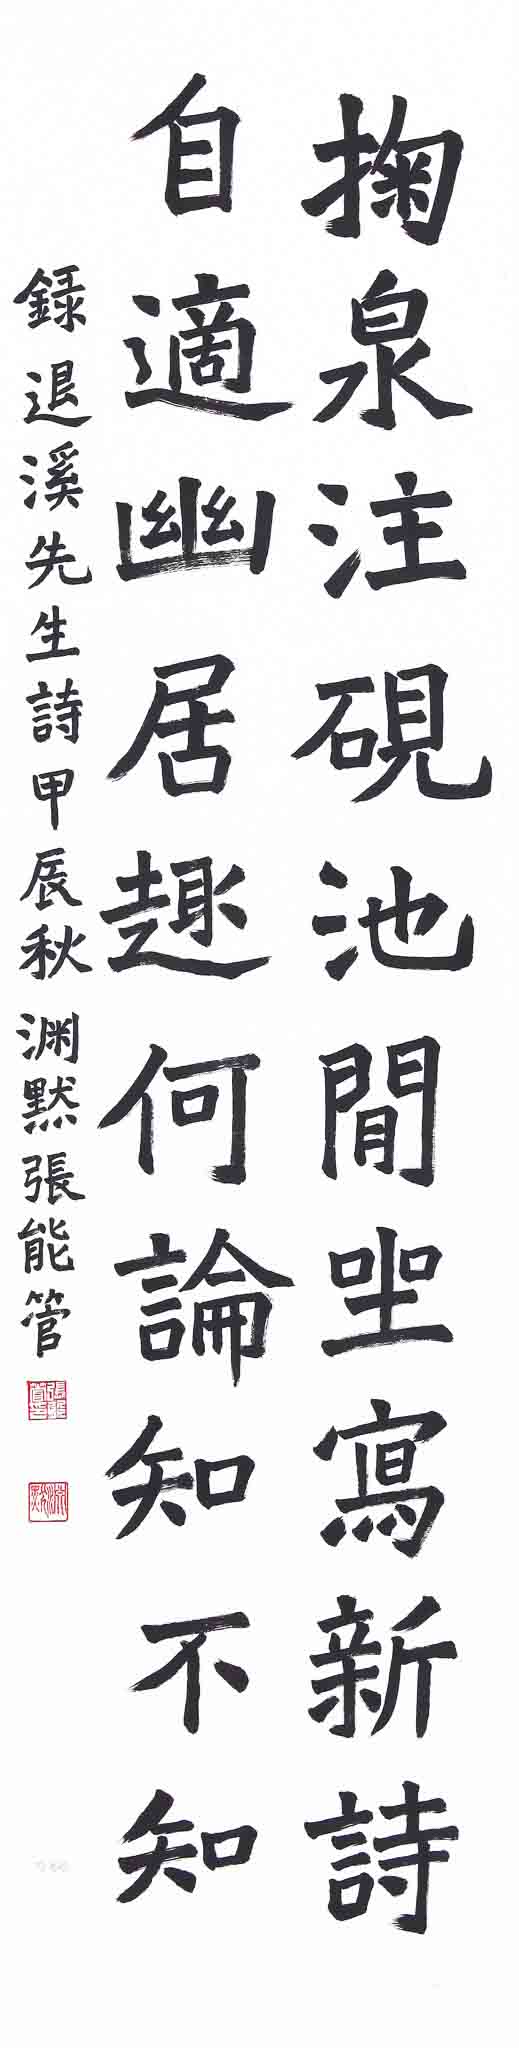 掬泉注硯池閒坐寫新詩
自適幽居趣何論知不知
錄退溪先生詩甲辰秋 渊默張能管